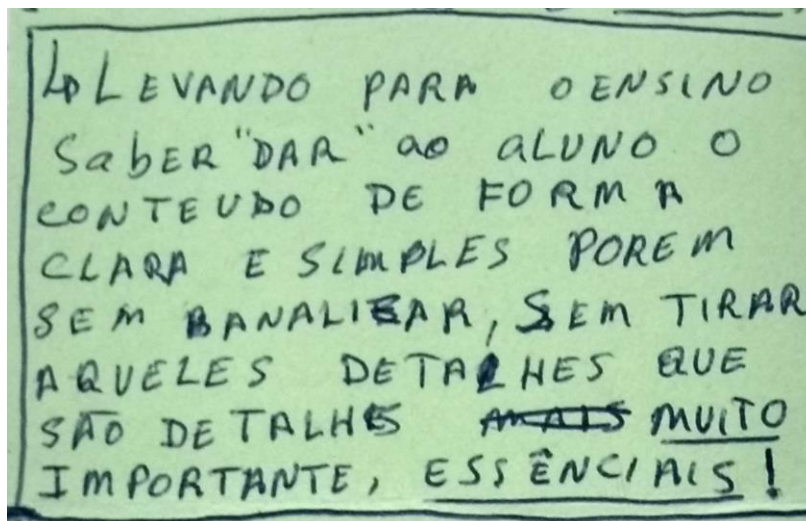 ↳ LEVANDO PARA O ENSINO
SabER "DAR" ao aLUNO O
CONTEUDO DE FORMA
CLARA E SIMPLES POREM
SEM BANALIZAR, SEM TIRAR
AQUELES DETALHES QUE
SÃO DETALHES MUITO
IMPORTANTE, ESSÊNCIAIS!